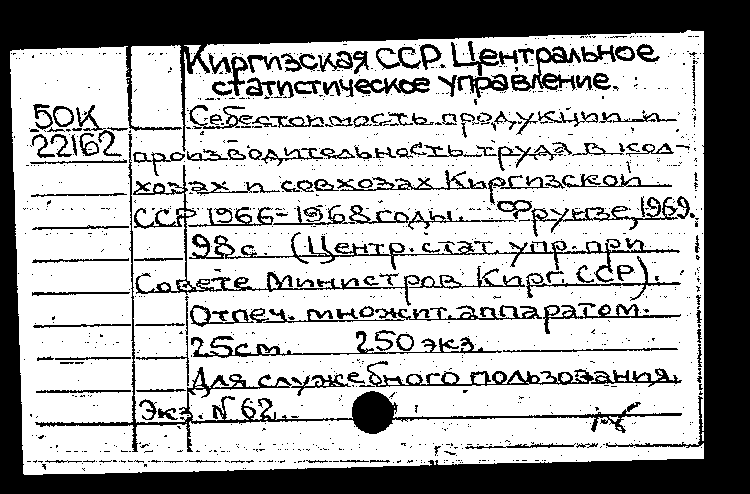 Киргизская ССР. Центральное
статистическое управление.
50К
22162
Себестоимость продукции и
производительность труда в кол-
хозах и совхозах Киргизской
ССР 1966-1968 годы. Фрунзе, 1969.
98 с. (Центр. стат. упр. при
Совете Министров Кирг. ССР).
Отпеч. множит. аппаратом.
25 см. 250 экз.
Для служебного пользования.
Экз. N 62.